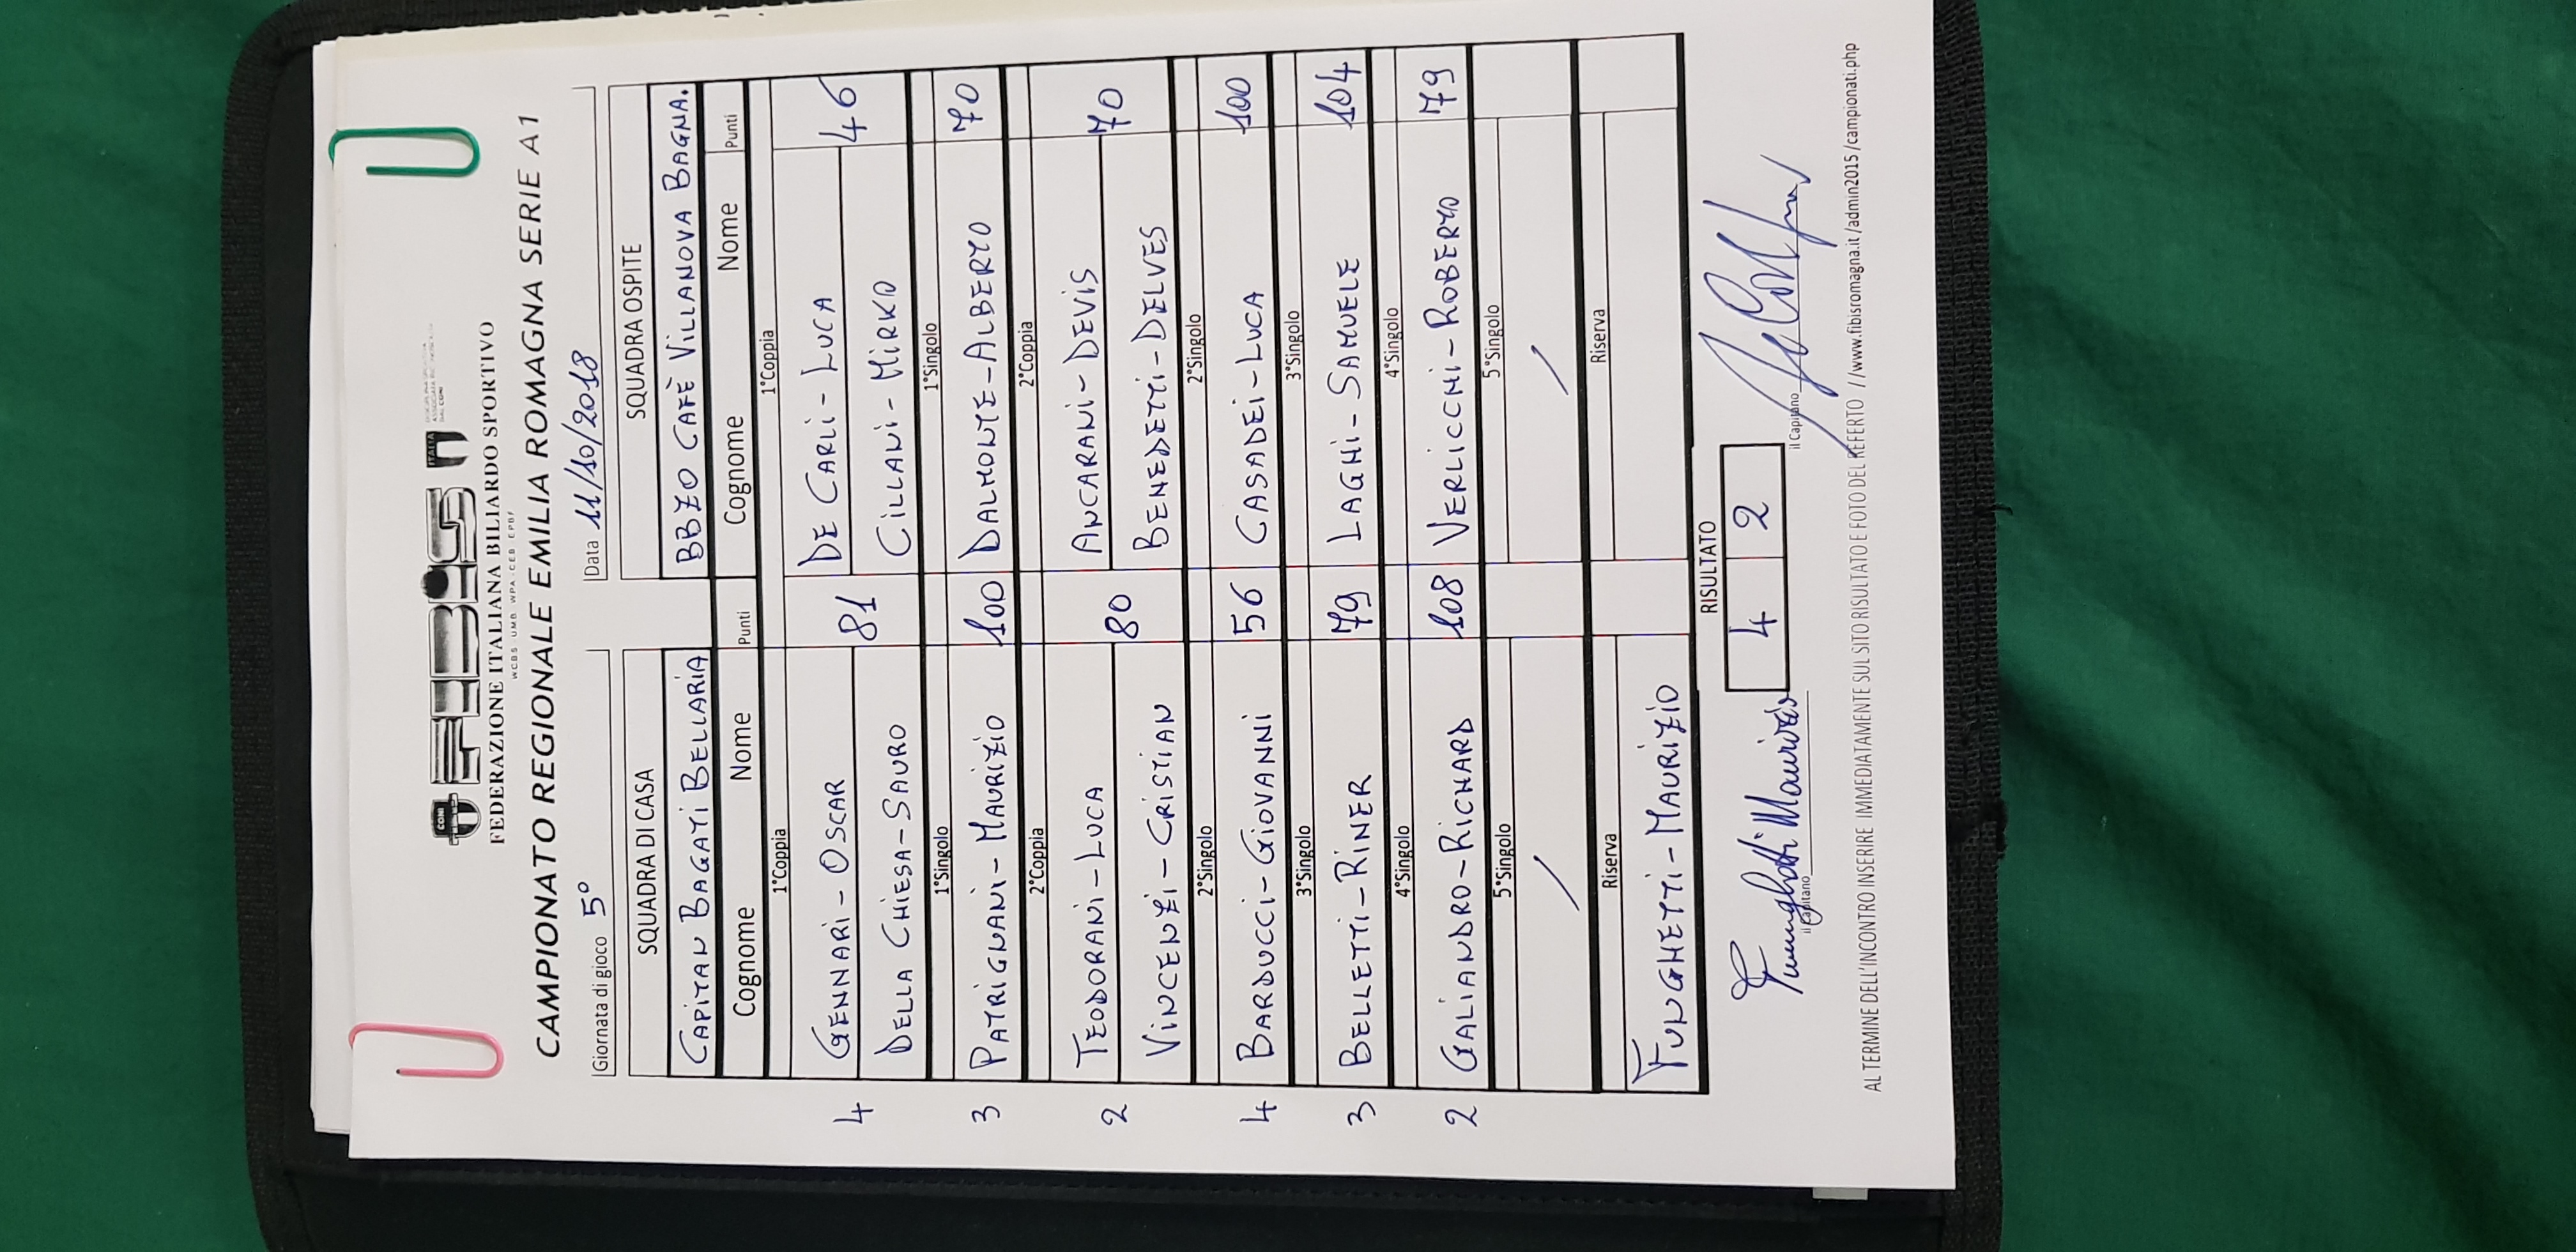 CONI
FIBiS
ITALIA
FEDERAZIONE ITALIANA BILIARDO SPORTIVO
CAMPIONATO REGIONALE EMILIA ROMAGNA SERIE A1
Giornata di gioco 5° Data 11/10/2018
SQUADRA DI CASA SQUADRA OSPITE
CAPITAN BAGATI BELLARIA BBZO CAFÈ VILLANOVA BAGNA.
Cognome Nome Punti Cognome Nome Punti
1°Coppia 1°Coppia
4 GENNARI - OSCAR 81 DE CARLI - LUCA 46
DELLA CHIESA - SAURO CILLANI - MIRKO
1°Singolo 1°Singolo
3 PATRIGNANI - MAURIZIO 100 DALMONTE - ALBERTO 70
2°Coppia 2°Coppia
2 TEODORANI - LUCA 80 ANCARANI - DEVIS 70
VINCENZI - CRISTIAN BENEDETTI - DELVES
2°Singolo 2°Singolo
4 BARDUCCI - GIOVANNI 56 CASADEI - LUCA 100
3°Singolo 3°Singolo
3 BELLETTI - RINER 79 LAGHI - SAMUELE 104
4°Singolo 4°Singolo
2 GALIANDRO - RICHARD 108 VERLICCHI - ROBERTO 79
5°Singolo 5°Singolo
/ /
Riserva Riserva
FUNGHETTI - MAURIZIO
RISULTATO
4 2
il Capitano Funghetti Maurizio il Capitano
AL TERMINE DELL'INCONTRO INSERIRE IMMEDIATAMENTE SUL SITO RISULTATO E FOTO DEL REFERTO //www.fibisromagna.it/admin2015/campionati.php